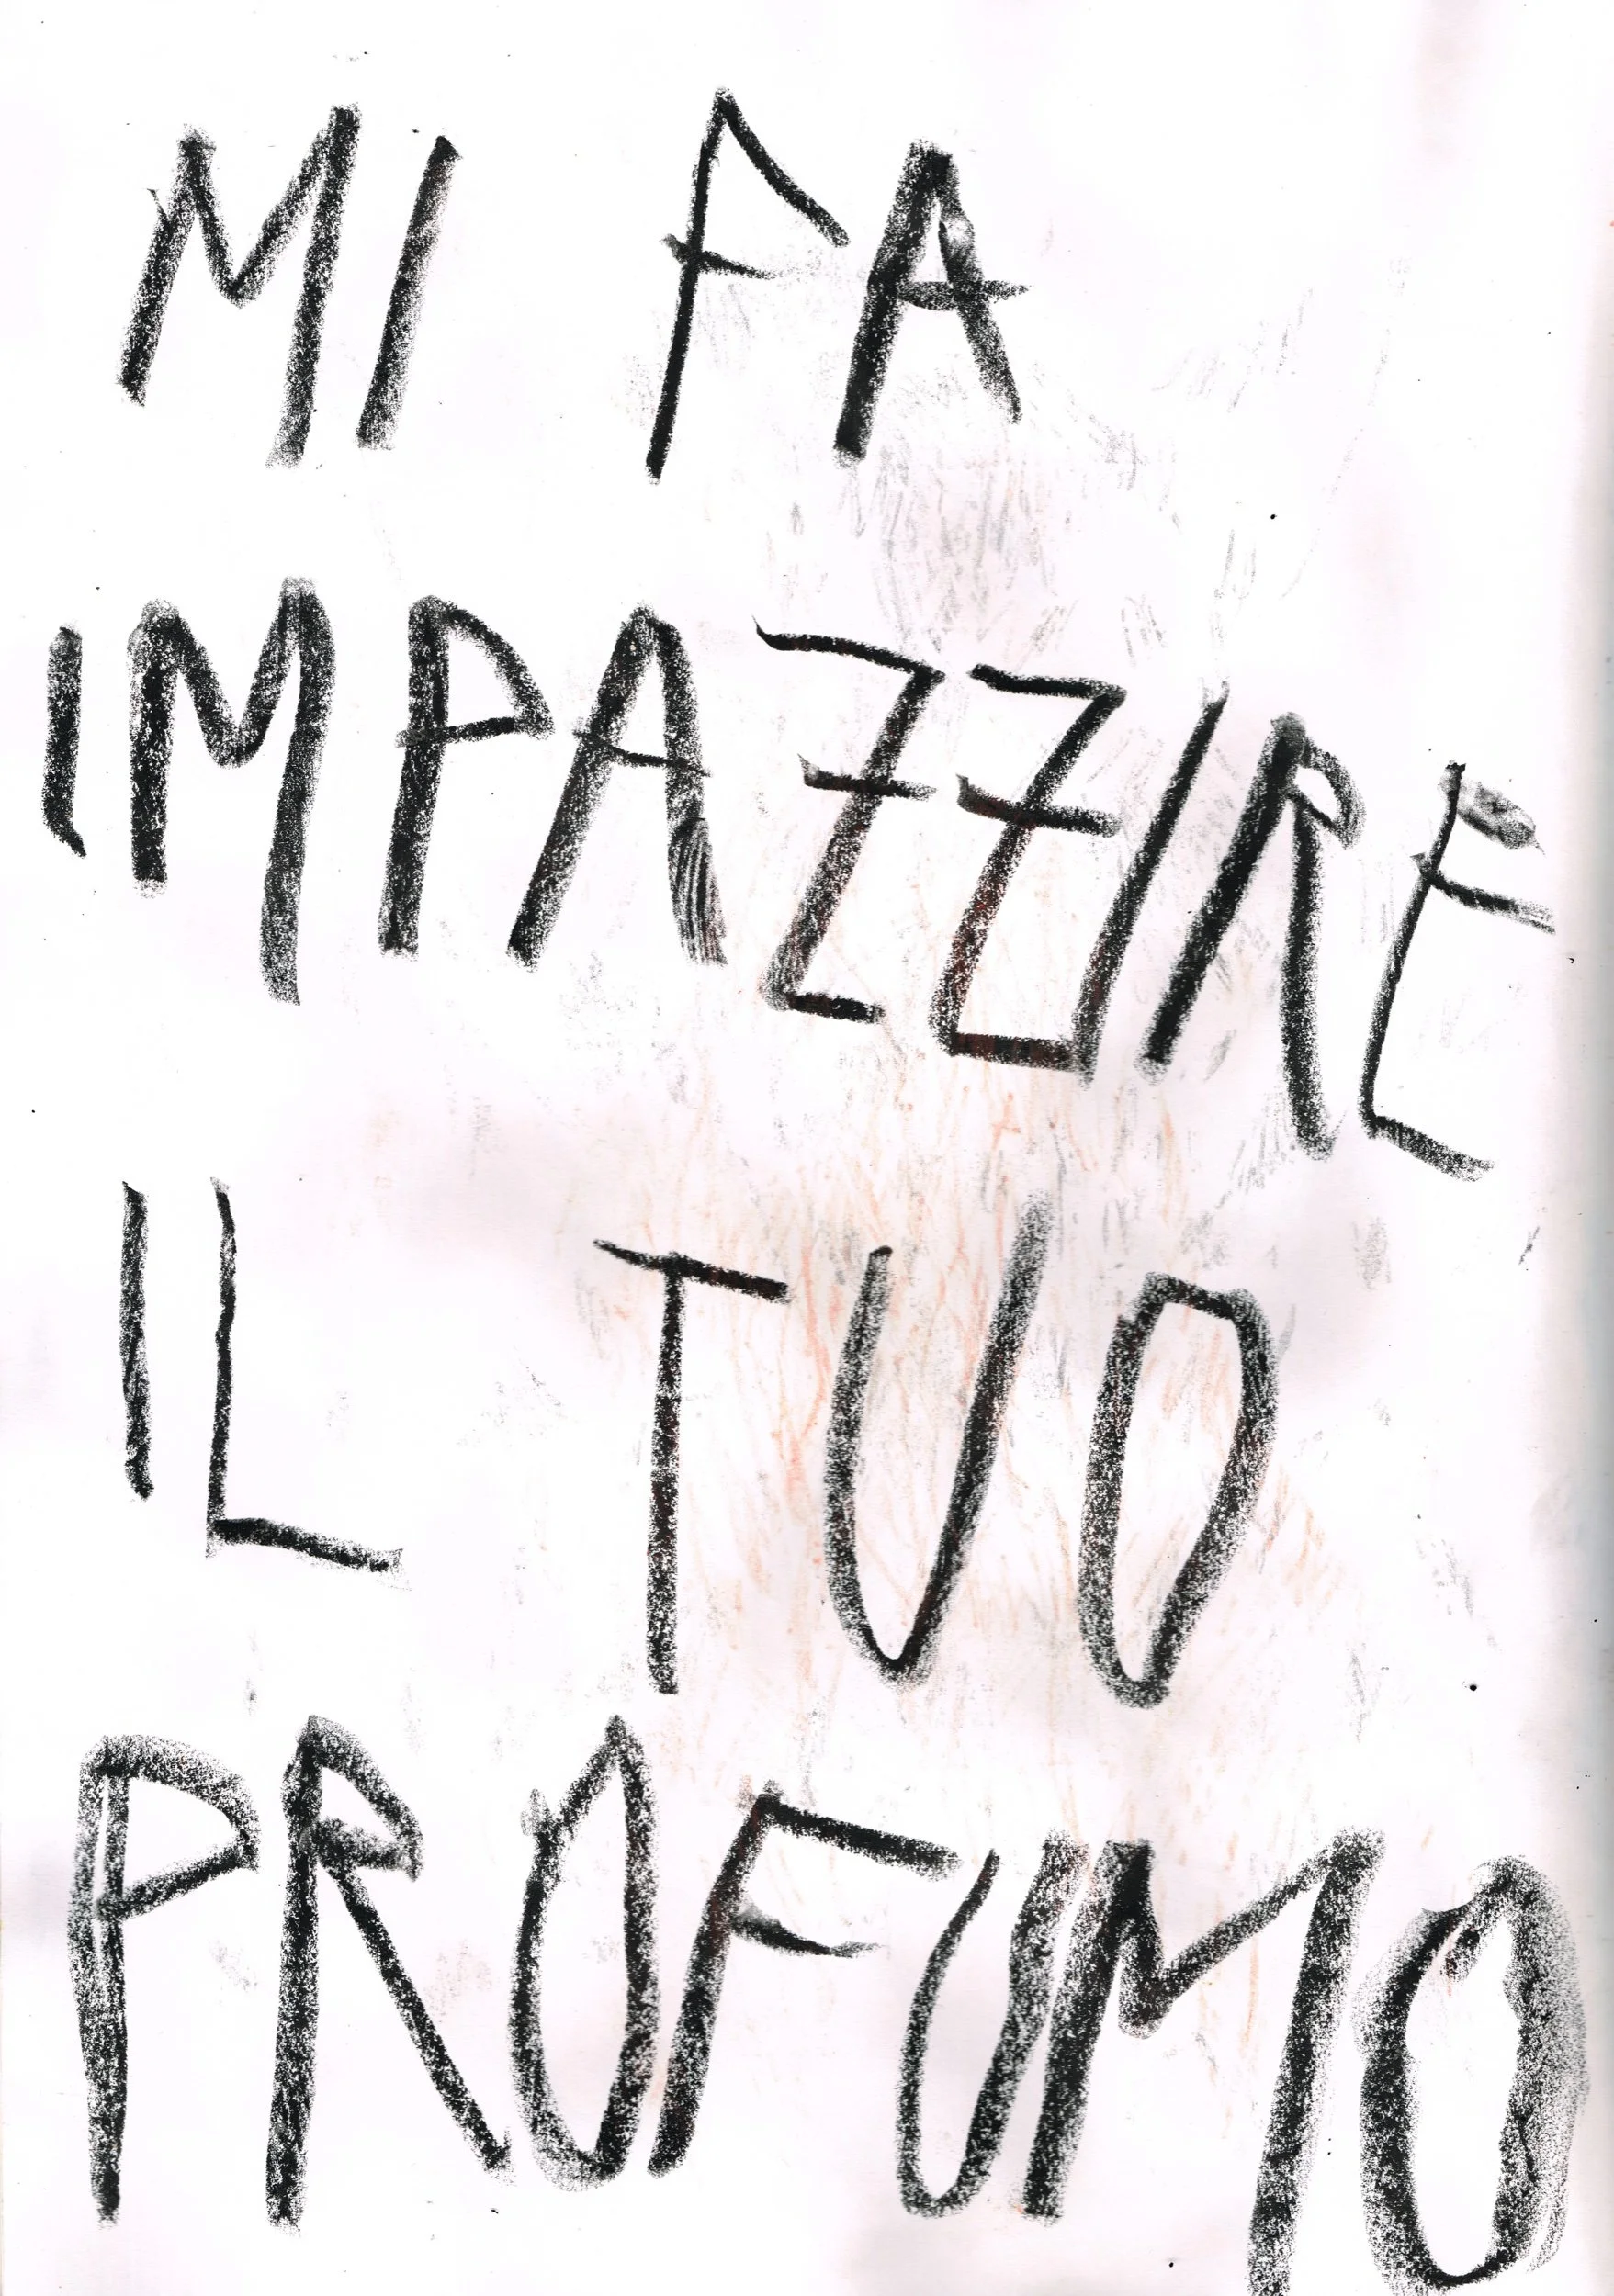 MI FA
IMPAZZIRE
IL TUO
PROFUMO